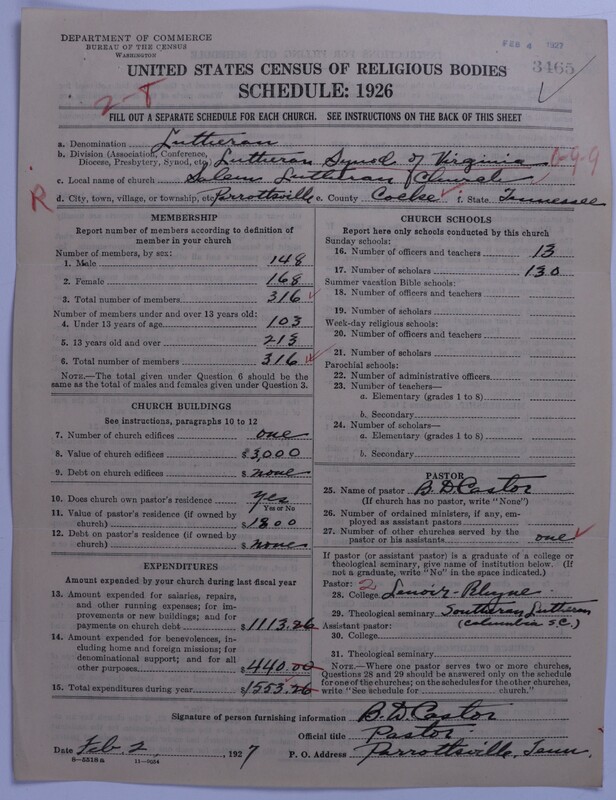 DEPARTMENT OF COMMERCE
BUREAU OF THE CENSUS
WASHINGTON
FEB 4 1927
3465
UNITED STATES CENSUS OF RELIGIOUS BODIES
SCHEDULE: 1926
2-8
FILL OUT A SEPARATE SCHEDULE FOR EACH CHURCH. SEE INSTRUCTIONS ON THE BACK OF THIS SHEET
a. Denomination Lutheran
b. Division (Association, Conference, Diocese, Presbytery, Synod, etc.) Lutheran Synod of Virginia
c. Local name of church Salem Lutheran Church
R
d. City, town, village, or township, etc. Parrottsville e. County Cocke f. State Tennessee
MEMBERSHIP
Report number of members according to definition of
member in your church
Number of members, by sex:
1. Male 148
2. Female 168
3. Total number of members 316
Number of members under and over 13 years old:
4. Under 13 years of age 103
5. 13 years old and over 213
6. Total number of members 316
NOTE.—The total given under Question 6 should be the
same as the total of males and females given under Question 3.
CHURCH BUILDINGS
See instructions, paragraphs 10 to 12
7. Number of church edifices one
8. Value of church edifices $3,000
9. Debt on church edifices $ none
10. Does church own pastor's residence Yes
Yes or No
11. Value of pastor's residence (if owned by
church) $1800
12. Debt on pastor's residence (if owned by
church) $ none
EXPENDITURES
Amount expended by your church during last fiscal year
13. Amount expended for salaries, repairs,
and other running expenses; for im-
provements or new buildings; and for
payments on church debt $1113.26
14. Amount expended for benevolences, in-
cluding home and foreign missions; for
denominational support; and for all
other purposes $440.00
15. Total expenditures during year $1553.26
CHURCH SCHOOLS
Report here only schools conducted by this church
Sunday schools:
16. Number of officers and teachers 13
17. Number of scholars 130
Summer vacation Bible schools:
18. Number of officers and teachers
19. Number of scholars
Week-day religious schools:
20. Number of officers and teachers
21. Number of scholars
Parochial schools:
22. Number of administrative officers
23. Number of teachers—
a. Elementary (grades 1 to 8)
b. Secondary
24. Number of scholars—
a. Elementary (grades 1 to 8)
b. Secondary
PASTOR
25. Name of pastor B. D. Castor
(If church has no pastor, write "None")
26. Number of ordained ministers, if any, em-
ployed as assistant pastors
27. Number of other churches served by the
pastor or his assistants one
If pastor (or assistant pastor) is a graduate of a college or
theological seminary, give name of institution below. (If
not a graduate, write "No" in the space indicated.)
Pastor: 2
28. College Lenoir-Rhyne
29. Theological seminary Southern Lutheran
Assistant pastor: (Columbia S.C.)
30. College
31. Theological seminary
NOTE.—Where one pastor serves two or more churches,
Questions 28 and 29 should be answered only on the schedule
for one of the churches; on the schedules for the other churches,
write "See schedule for church."
Signature of person furnishing information B. D. Castor
Official title Pastor
Date Feb. 2, 1927 P. O. Address Parrottsville, Tenn.
8-5518a 11-9054